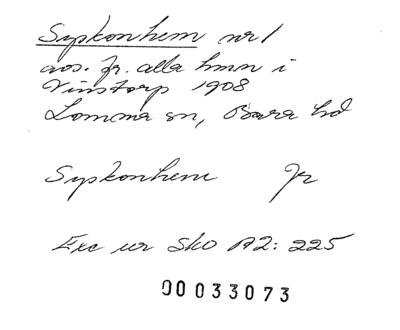 Syskonhem nr 1
avs. fr. alla hmn i
Vinstorp 1908
Lomma sn, Bara hd
Syskonhem Jr
Exc ur Sko A2: 225
00033073